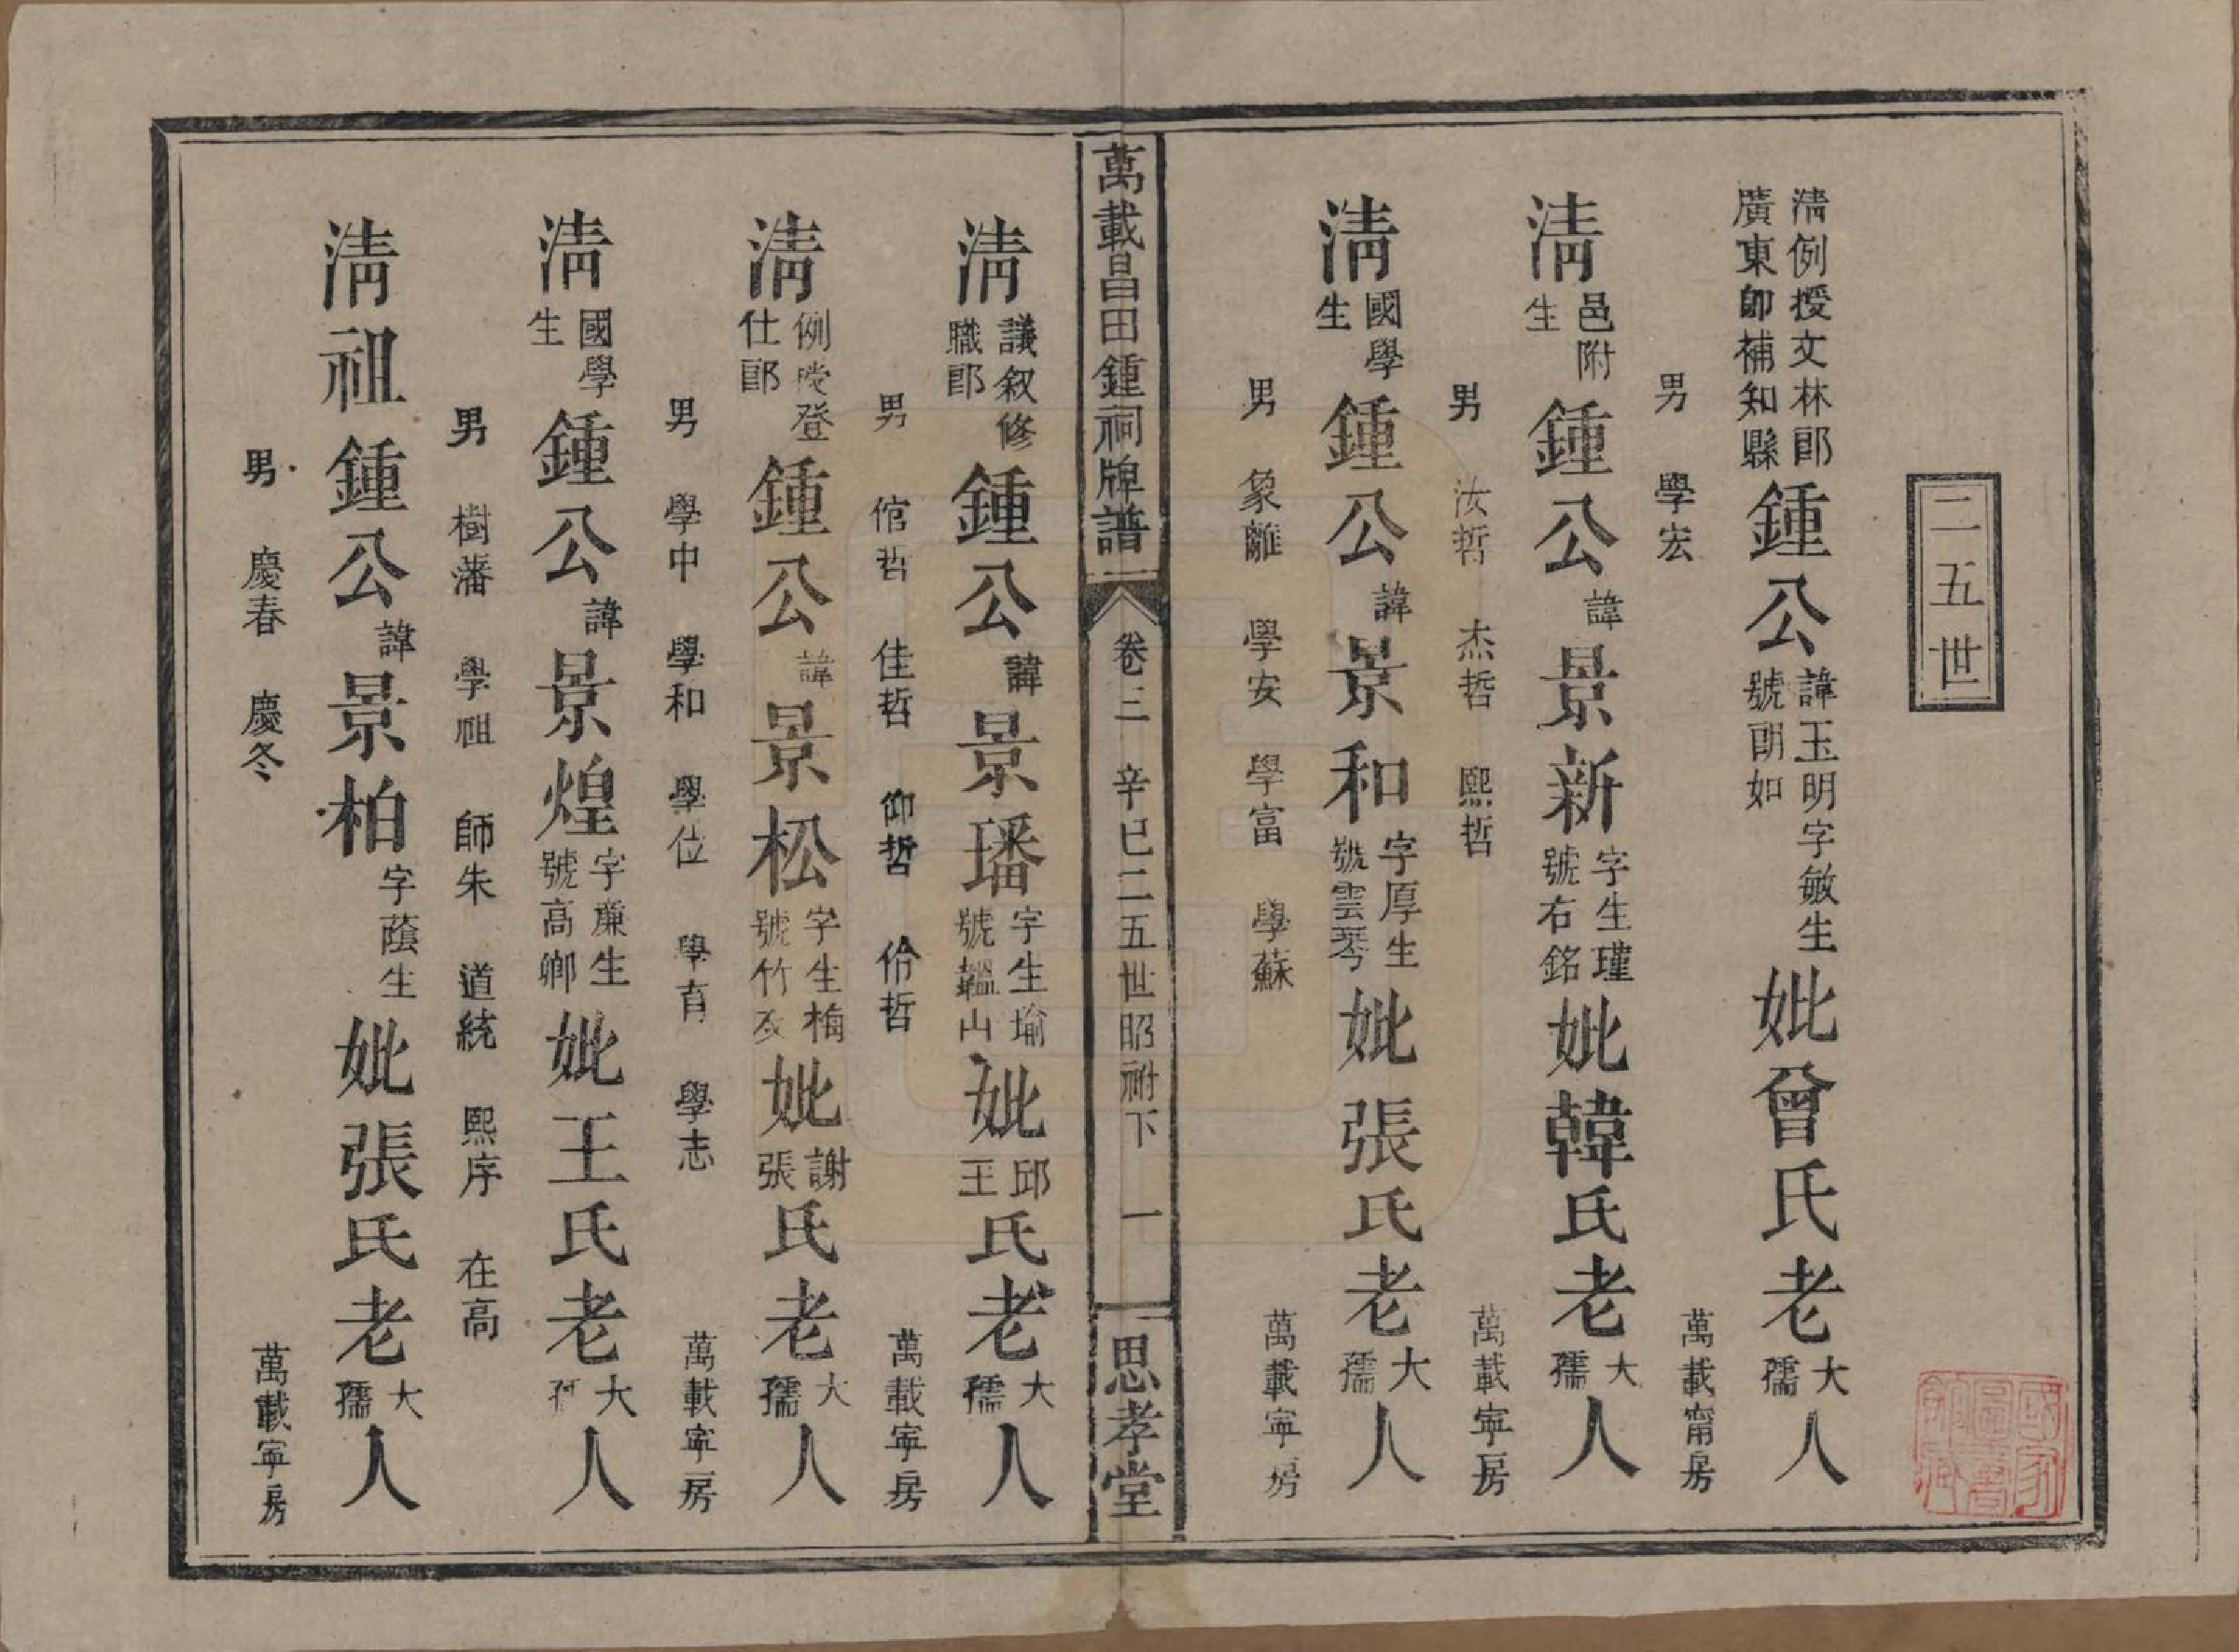 二五世
清例授文林郎廣東即補知縣鍾公諱玉明字敏生號朗如妣曾氏老大孺人
男 學宏 萬載甯房
清邑附生鍾公諱景新字生瑾號右銘妣韓氏老大孺人
男 汝哲 杰哲 熙哲 萬載寜房
清國學生鍾公諱景和字厚生號雲琴妣張氏老大孺人
男 象離 學安 學富 學蘇 萬載寜房
萬載昌田鍾祠牌譜 卷三 辛巳二五世昭祔下 一 思孝堂
清議叙修職郎鍾公諱景璠字生瑜號韞山妣邱王氏老大孺人
男 倌哲 佳哲 仰哲 佮哲 萬載寜房
清例授登仕郎鍾公諱景松字生梅號竹友妣謝張氏老大孺人
男 學中 學和 學位 學育 學志 萬載寜房
清國學生鍾公諱景煌字亷生號高鄉妣王氏老大孺人
男 樹藩 學祖 師朱 道統 熙序 在高
清祖鍾公諱景柏字蔭生妣張氏老大孺人
男 慶春 慶冬 萬載寜房
國家圖書館藏